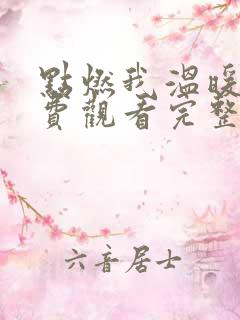 點燃我溫暖
費觀看完整
六音居士